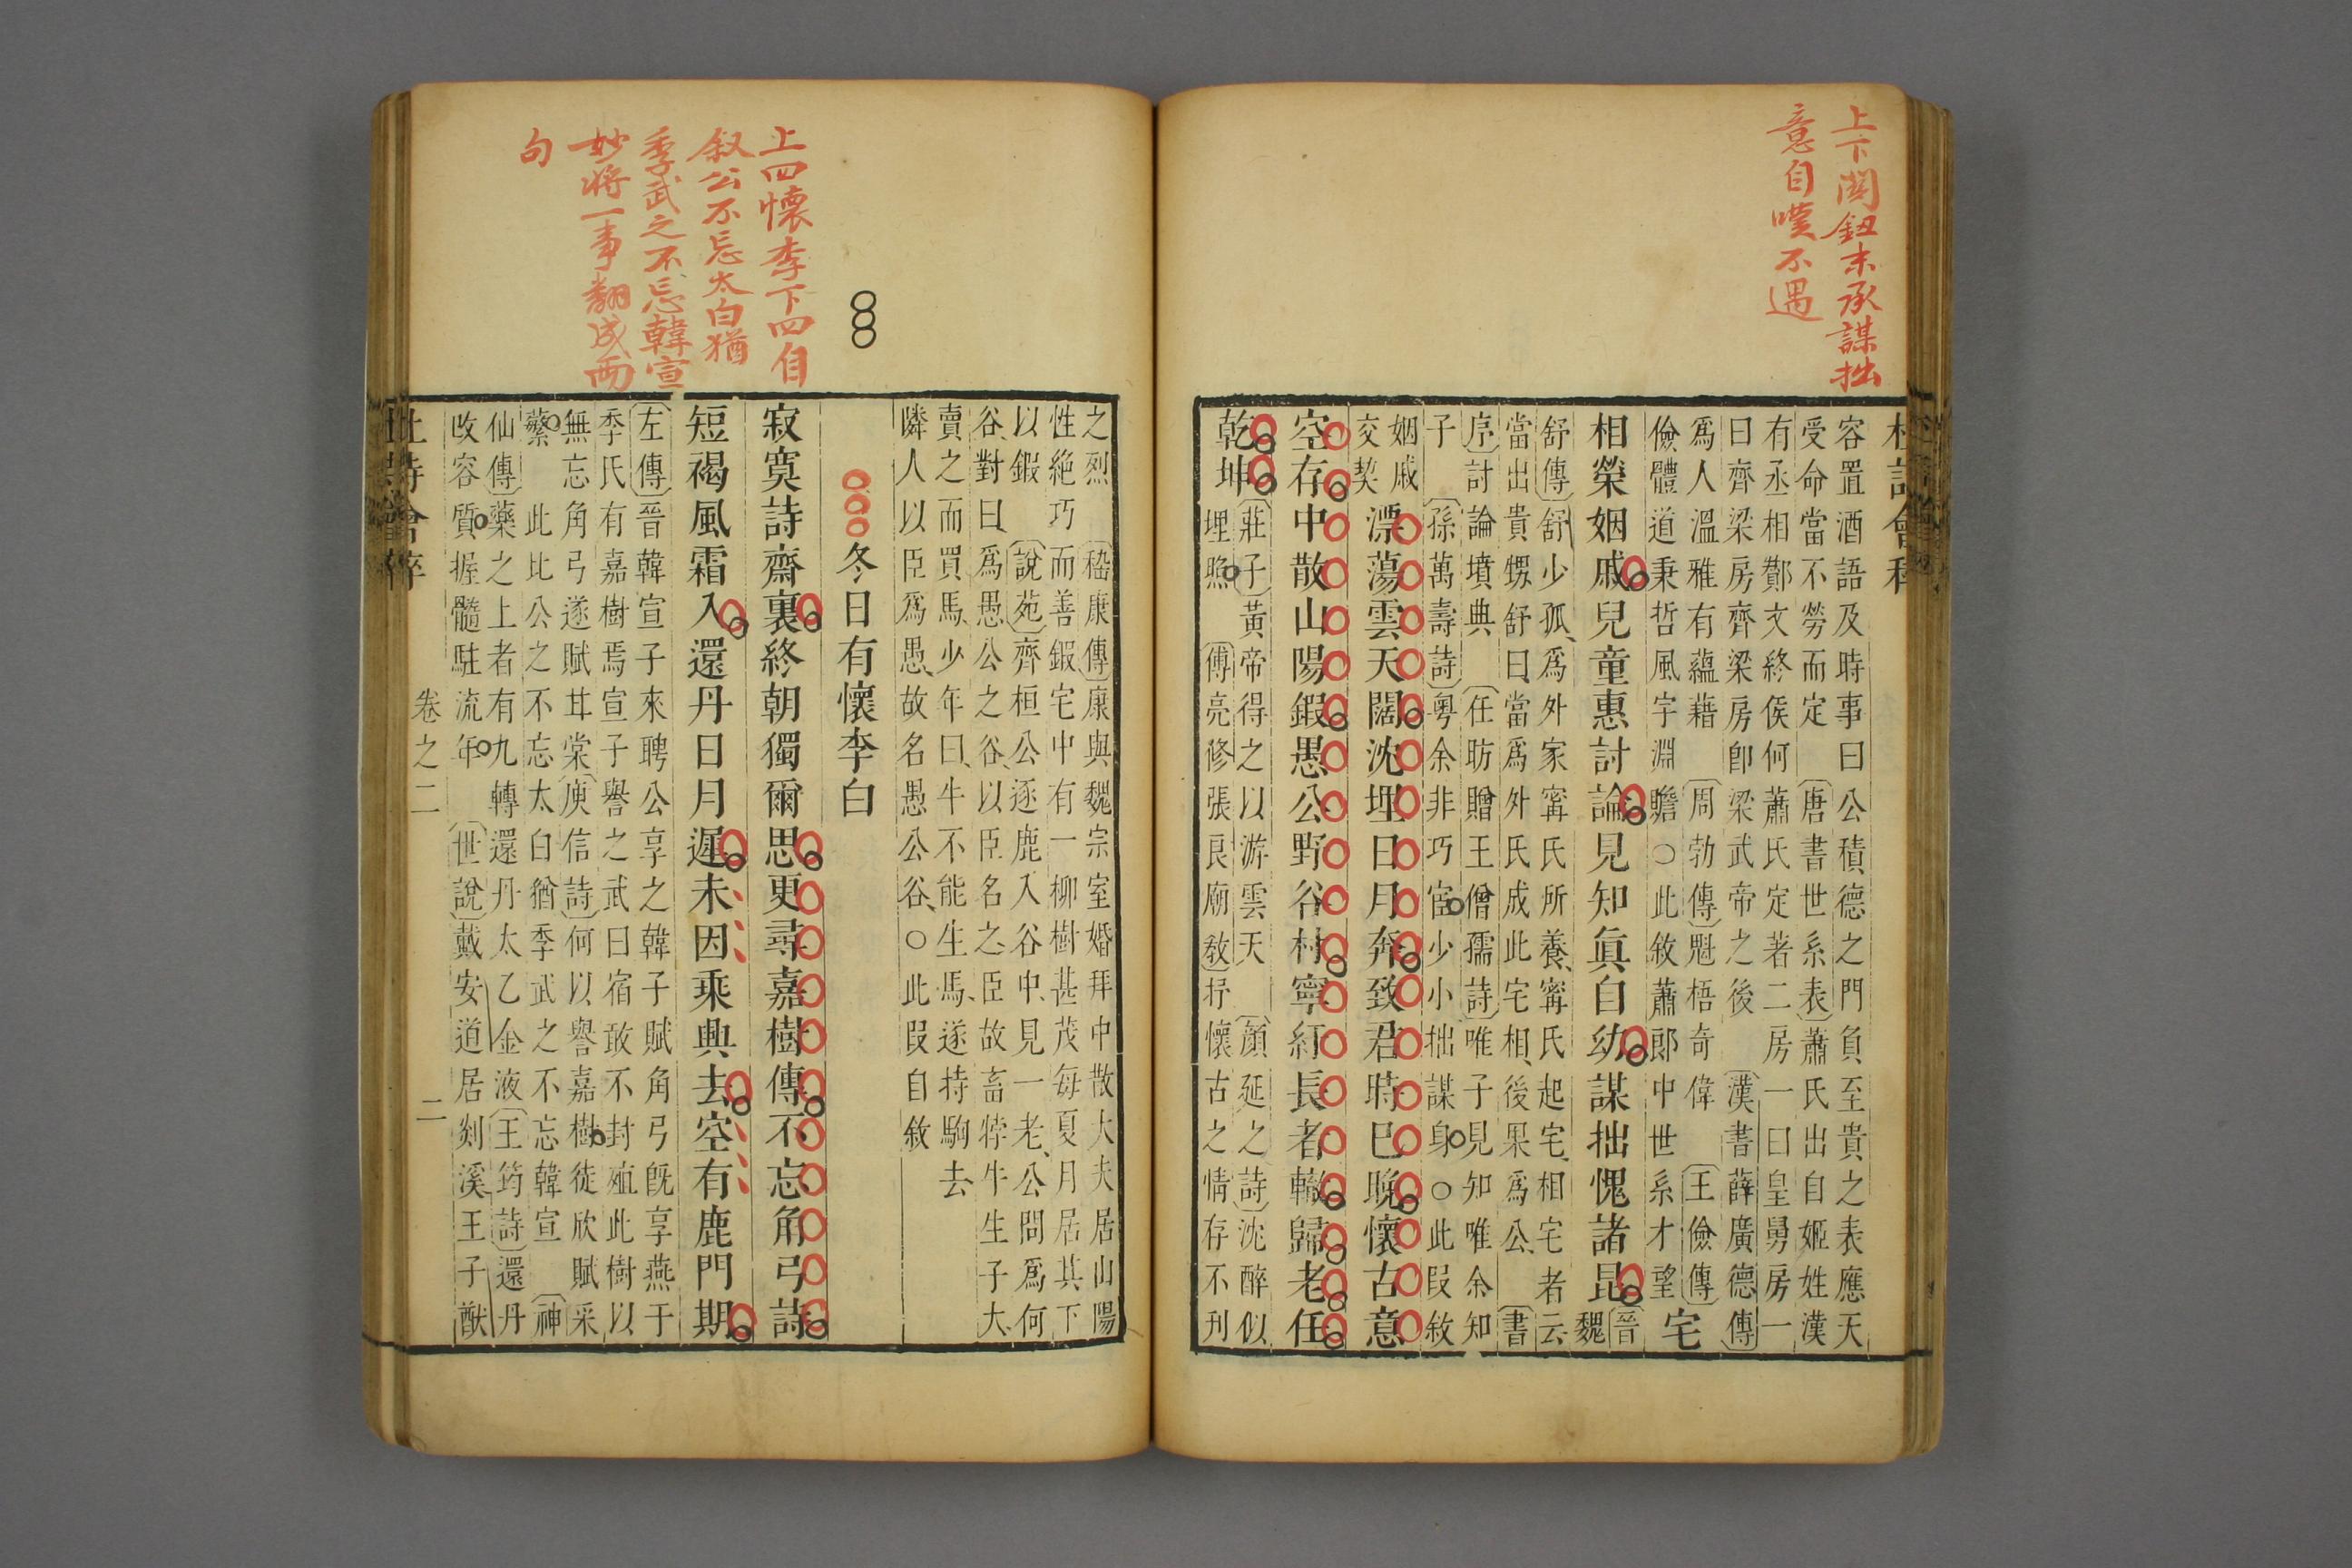 上下關鈕末承謀拙
意自嘆不遇
容置酒語及時事曰公積德之門負至貴之表應天
受命當不勞而定〔唐書世系表〕蕭氏出自姬姓漢
有丞相酇文終侯何蕭氏定著二房一曰皇舅房一
曰齊梁房齊梁房卽梁武帝之後〔漢書薛廣德傳〕
爲人溫雅有蘊藉〔周勃傳〕魁梧奇偉〔王儉傳〕
儉體道秉哲風宇淵曕○此敘蕭郎中世系才望
宅
相榮姻戚兒童惠討論見知眞自幼謀拙愧諸昆
〔晉
魏
舒傳〕舒少孤、爲外家寗氏所養、寗氏起宅、相宅者云
當出貴甥舒曰當爲外氏成此宅相、後果爲公、〔書
序〕討論墳典〔任昉贈王僧孺詩〕唯子見知唯余知
子〔孫萬壽詩〕粤余非巧宦少小拙謀身○此叚敘
姻戚
交契
漂蕩雲天闊沈埋日月奔致君時已晚懷古意
空存中散山陽鍛愚公野谷村寧紆長者轍歸老任
乾坤
〔莊子〕黃帝得之以游雲天〔顏延之詩〕沈醉似
埋照〔傅亮修張良廟敎〕抒懷古之情存不刋
上四懷李下四自
叙公不忘太白猶
季武之不忘韓宣
妙將一事翻成兩
句
之烈〔嵇康傳〕康與魏宗室婚拜中散大夫居山陽
性絶巧而善鍛宅中有一柳樹甚茂每夏月居其下
以鍛〔說苑〕齊桓公逐鹿入谷中、見一老、公問爲何
谷、對曰、爲愚公之谷、以臣名之、臣故畜牸牛生子大、
賣之而買馬、少年曰、牛不能生馬、遂持駒去
隣人以臣爲愚、故名愚公谷、○此叚自敘
冬日有懷李白
寂寞詩齋裏終朝獨爾思更尋嘉樹傳不忘角弓詩
短褐風霜入還丹日月遲未因乘興去空有鹿門期
〔左傳〕晉韓宣子來聘公享之韓子賦角弓旣享燕于
季氏有嘉樹焉宣子譽之武曰宿敢不封殖此樹以
無忘角弓遂賦甘棠〔庾信詩〕何以譽嘉樹徒欣賦采
蘩 此比公之不忘太白猶季武之不忘韓宣〔神
仙傳〕藥之上者有九轉還丹太乙金液〔王筠詩〕還丹
改容質握髓駐流年〔世說〕戴安道居剡溪王子猷
卷之二
二
杜詩會稡